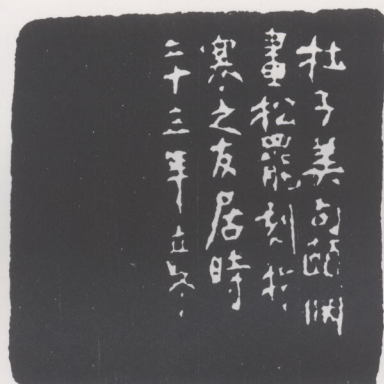 杜子美句頤淵
畫松罷刻於
寒之友居時
二十三年立冬